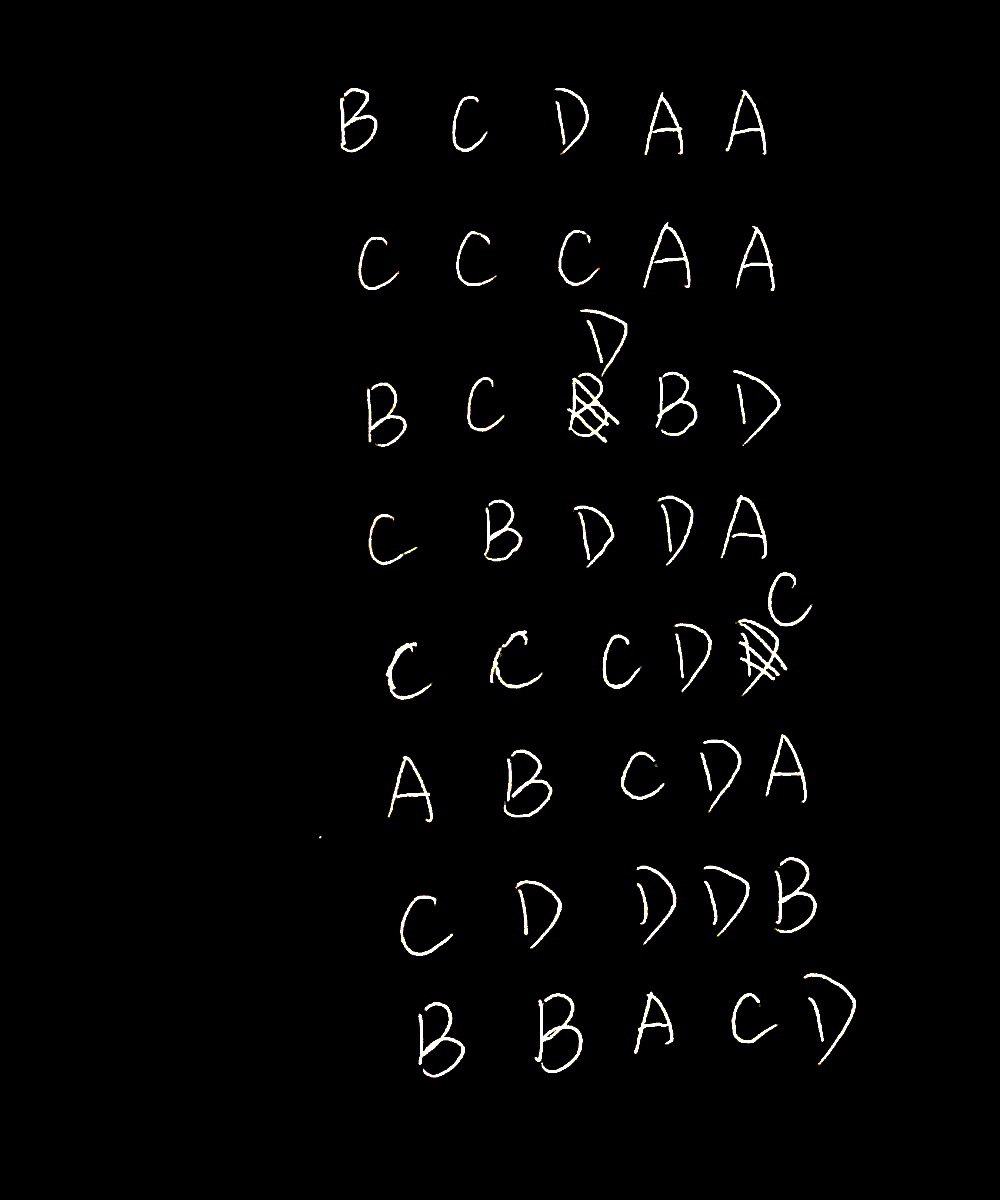 B C D A A
C C C A A
B C D B D
C B D D A
C C C D C
A B C D A
C D D D B
B B A C D